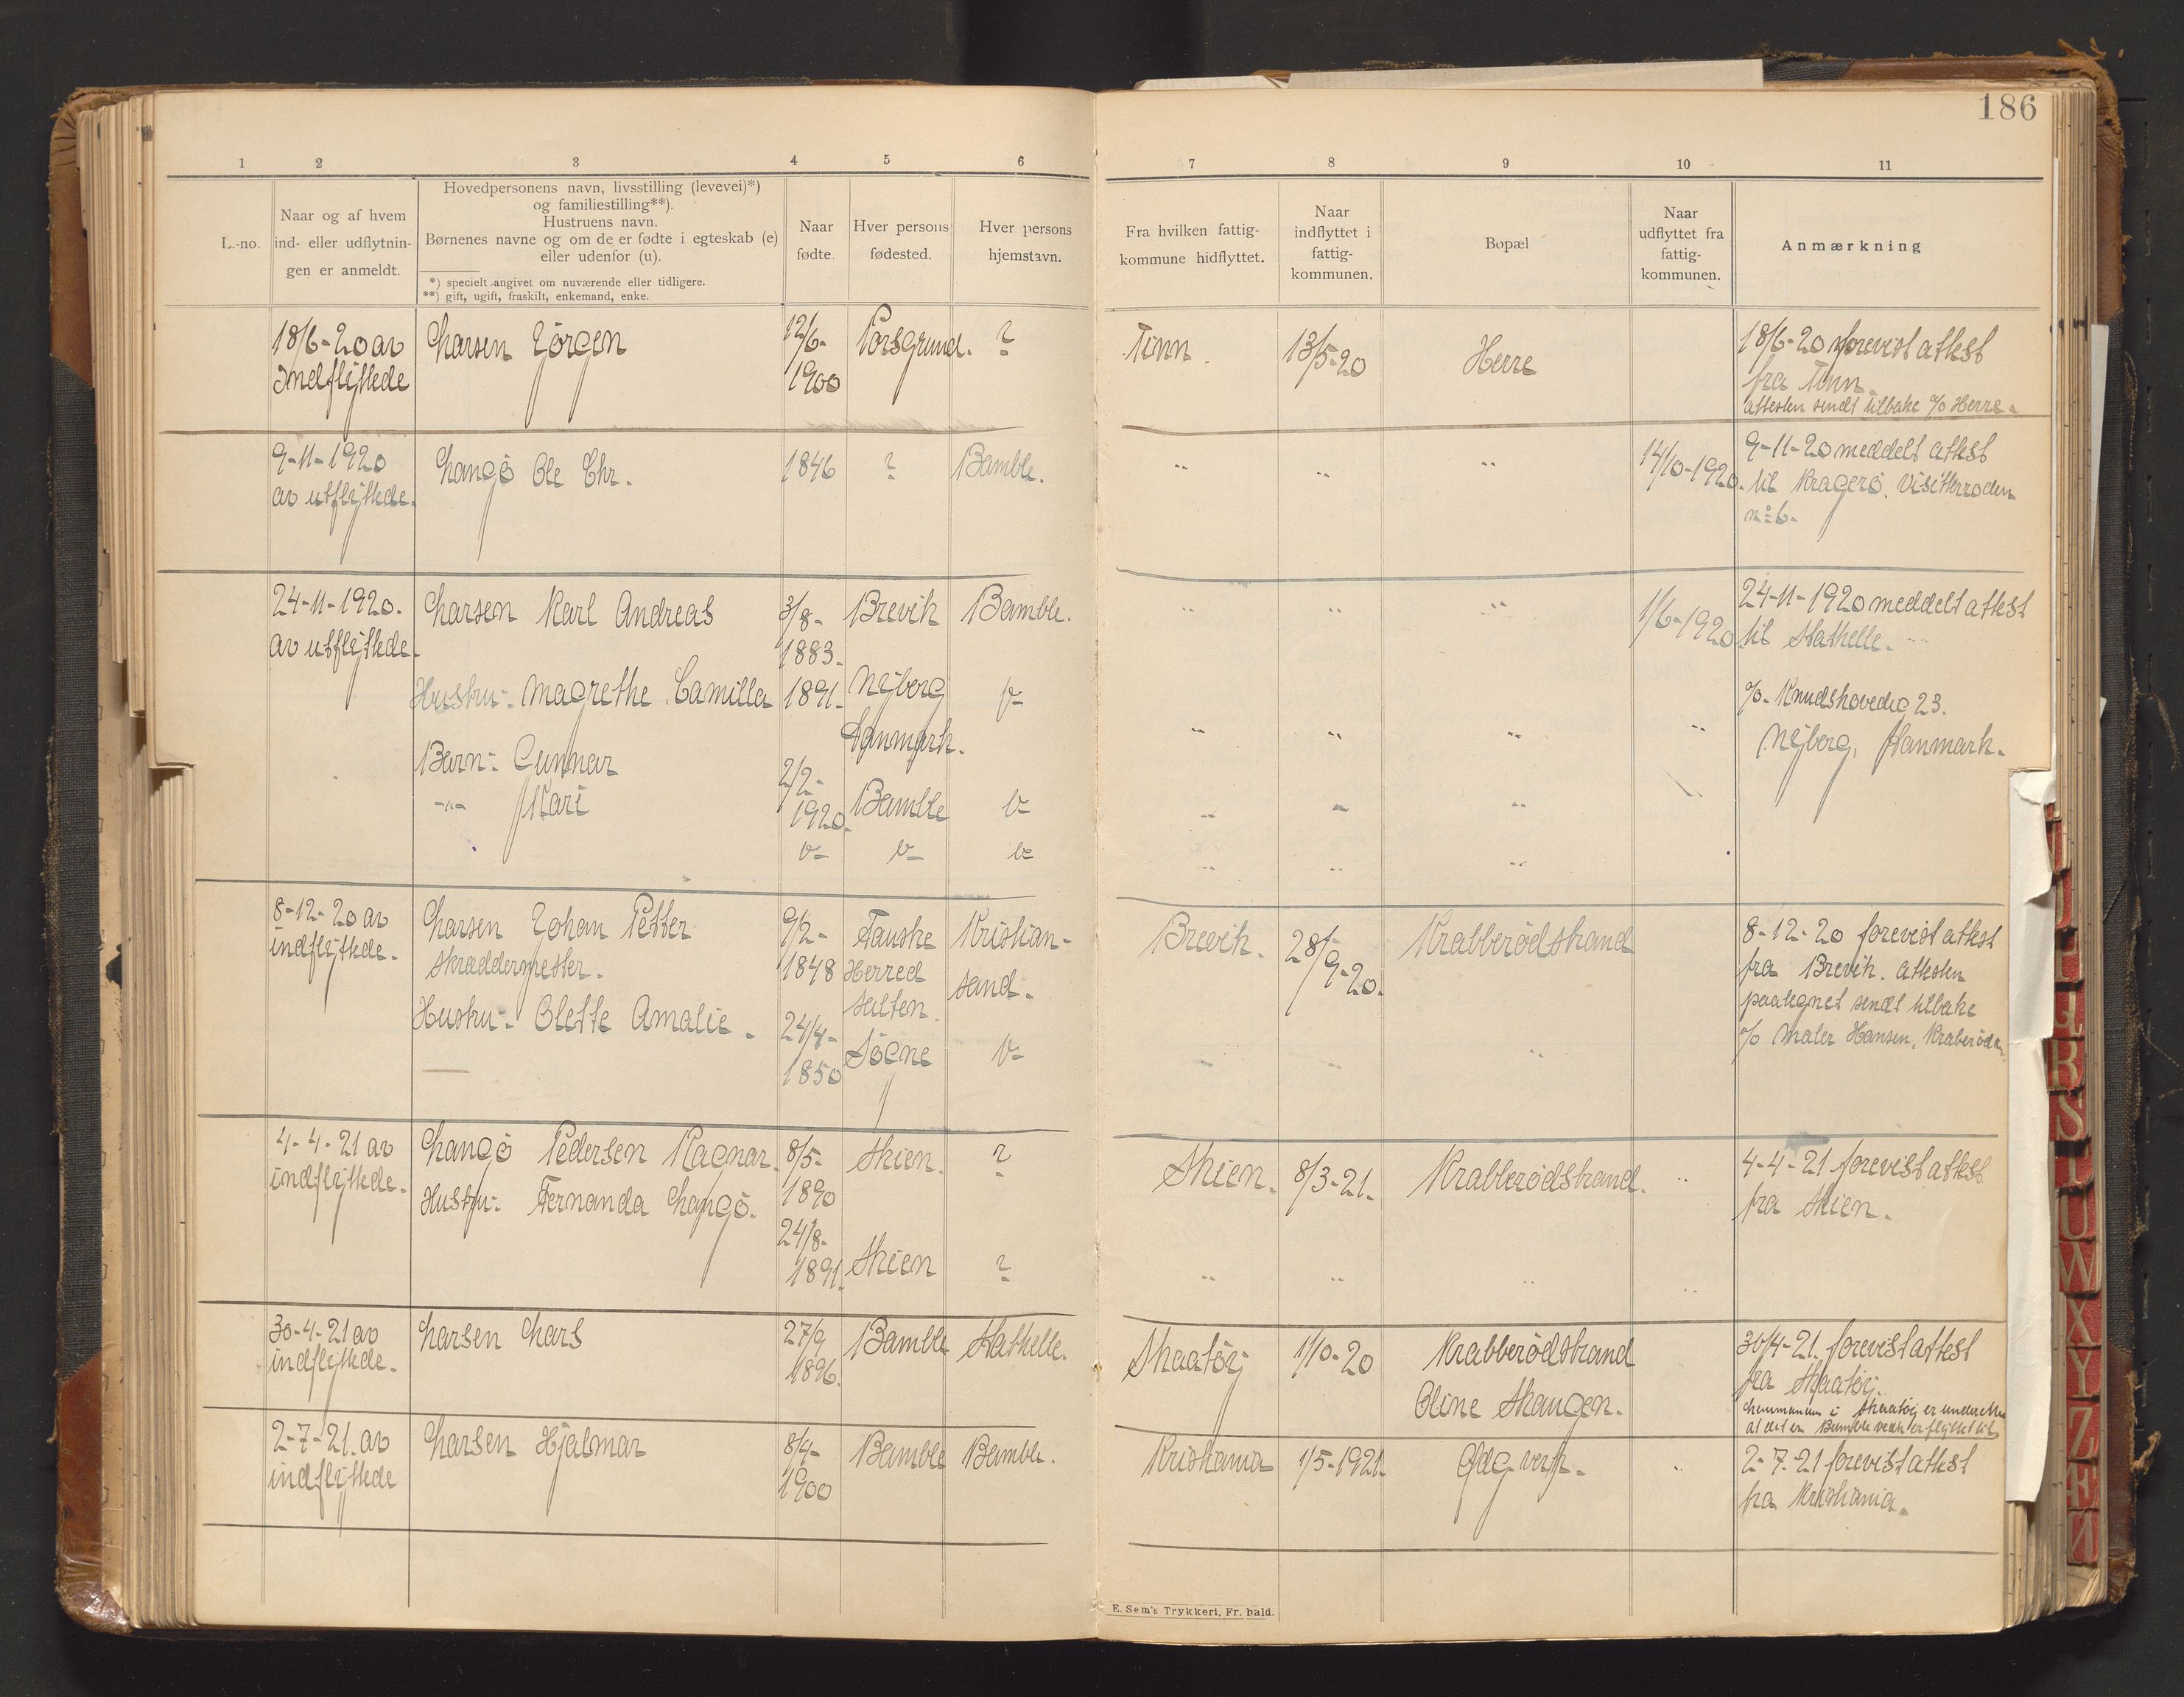 186
1 2 3 4 5 6 7 8 9 10 11
L.-no.
Naar og af hvem
ind- eller udflytnin-
gen er anmeldt.
Hovedpersonens navn, livsstilling (levevei)*)
og familiestilling**).
Hustruens navn.
Børnenes navne og om de er fødte i egteskab (e)
eller udenfor (u).
*) specielt angivet om nuværende eller tidligere.
**) gift, ugift, fraskilt, enkemand, enke.
Naar
fødte.
Hver persons
fødested.
Hver persons
hjemstavn.
Fra hvilken fattig-
kommune hidflyttet.
Naar
indflyttet i
fattig-
kommunen.
Bopæl
Naar
udflyttet fra
fattig-
kommunen.
Anmærkning
18/6-20 av
Indflyttede
Larsen Jörgen
12/6-
1900
Porsgrund.
?
Tinn.
13/5-20
Herre
18/6-20 forevist attest
fra Tinn.
attesten sendt tilbake c/o Herre.
9-11-1920
av utflyttede.
Langö Ole Chr.
1846
?
Bamble.
" " "
14/10-1920.
9-11-20 meddelt attest
til Kragerö. Visitterroden
no 6.
24-11-1920.
av utflyttede.
Larsen Karl Andreas
3/8-
1883.
Brevik
Bamble.
" " "
1/6-1920
24-11-1920 meddelt attest
til Stathelle.
Hustru:- Magrethe Camilla
1891.
Nyborg
Danmark.
"
" " " "
c/o. Knudshovedvg 23.
Nyborg, Danmark.
Barn:- Gunnar
2/2-
1920.
Bamble
"
" " "
-"- Kari
" " "
" " "
8-12-20 av
indflyttede.
Larsen Johan Petter
skræddermester.
9/2-
1848
Fauske
Herred
Salten.
Kristian-
sand.
Brevik.
28/
9-20.
Krabberödstrand
8-12-20 forevist attest
fra Brevik. attesten
paategnet sendt tilbake
c/o Maler Hansen, Kraberöds.
Hustru:- Olette Amalie.
24/4-
1850
Søgne
"
" " "
4-4-21 av
indflyttede.
Langö Pedersen Ragnar.
8/5-
1890
Skien.
?
Skien.
8/3-21.
Krabberödstrand.
"
4-4-21 forevist attest
fra Skien.
Hustru:- Fernanda Langö.
24/8-
1891.
Skien
?
" " " "
30-4-21 av
indflyttede.
Larsen Lars
27/9
1896.
Bamble
Stathelle.
Skaatöy
1/10-20
Krabberödstrand
Oline Skaugen.
30/4-21. forevist attest
fra Skaatöy.
i Skaatöy er
at det er Bamble flyttet til
2-7-21. av
indflyttede
Larsen Hjalmar
8/4-
1900
Bamble
Bamble.
Kristiania
1/5-1921.
"
2-7-21 forevist attest
fra Kristiania.
E. Sem's Trykkeri, Fr. hald.
I
L
P
R
S
T
U
W
X
Y
Z
Æ
Ø